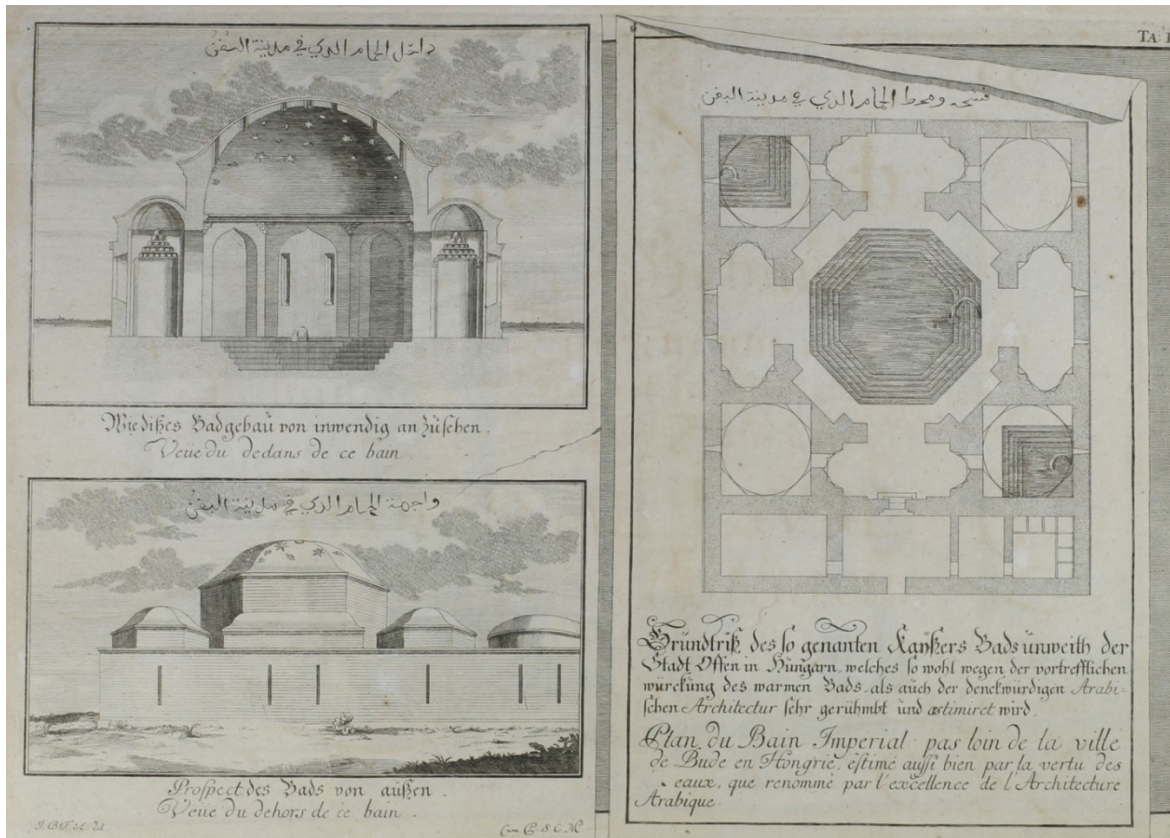 داخل الحمام الذي في مدينة البفن
Wie dißes Badgebaü von inwendig an züsehen.
Veüe du dedans de ce bain
واجهة الحمام الذي في مدينة البفن
Prospect des Bads von außen.
Veüe du dehors de ce bain.
TA:
الحمام الذي في مدينة البفن
Gründtriß des so genanten Kaÿßers Bads ünweith der
Stadt Offen in Hüngarn, welches so wohl wegen der vortrefflichen
würckung des warmen Bads, als auch der denckwürdigen Arabi-
schen Architectur sehr gerühmbt und æstimiret wird.
Plan du Bain Imperial pas loin de la ville
de Bude en Hongrie, éstimé aussi bien par la vertu des
eaux, que renommé par l'excellence de l'Architecture
Arabique.